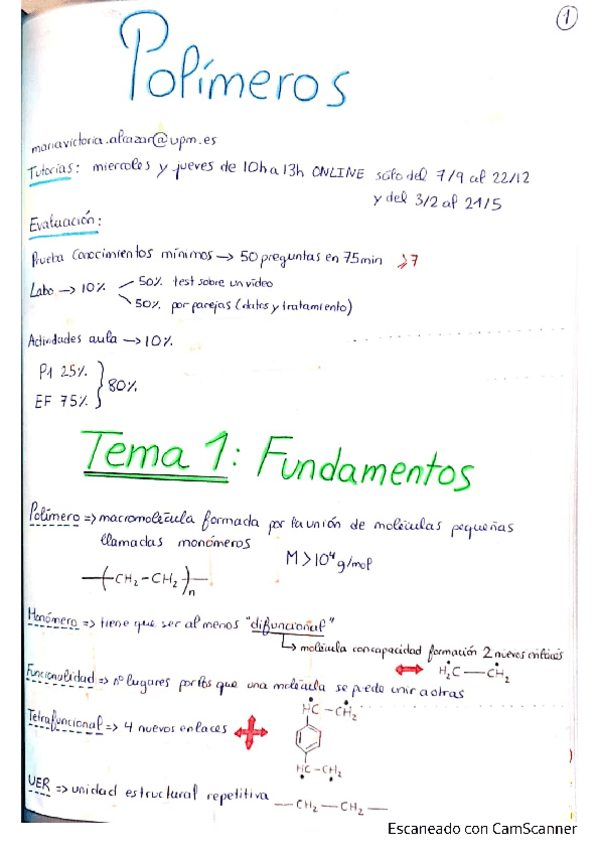 1
Polímeros
mariavictoria.alcazar@upm.es
Tutorías: miercoles y jueves de 10h a 13h ONLINE sólo del 7/9 al 22/12
y del 3/2 al 21/5
Evaluación:
Prueba Conocimientos mínimos → 50 preguntas en 75min ≥7
Labo → 10% 50% test sobre un vídeo
50% por parejas (datos y tratamiento)
Actividades aula → 10%
P1 25%
EF 75% } 80%
Tema 1: Fundamentos
Polímero => macromolécula formada por la unión de moléculas pequeñas
llamadas monómeros
M > 10⁴ g/mol
—(CH₂-CH₂)—n
Monómero => tiene que ser al menos "difuncional"
↳ molécula con capacidad formación 2 nuevos enlaces
H₂C — CH₂
Funcionalidad => nº lugares por los que una molécula se puede unir a otras
HC - CH₂
Tetrafuncional => 4 nuevos enlaces
HC - CH₂
UER => unidad estructural repetitiva —CH₂—CH₂—
Escaneado con CamScanner